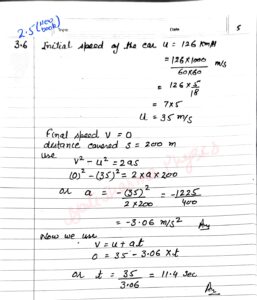 2.5 (New book)
Date
5
3.6 Initial speed of the car u = 126 km/h
= 126 × 1000 / 60 × 60 m/s
= 126 × 5/18
= 7 × 5
u = 35 m/s
Final speed V = 0
distance covered s = 200 m
use
V² - u² = 2as
(0)² - (35)² = 2 × a × 200
or a = -(35)² / 2 × 200 = -1225 / 400
= -3.06 m/s² Ans
Now we use
V = u + at
0 = 35 - 3.06 × t
or t = 35 / 3.06 = 11.4 sec
Ans